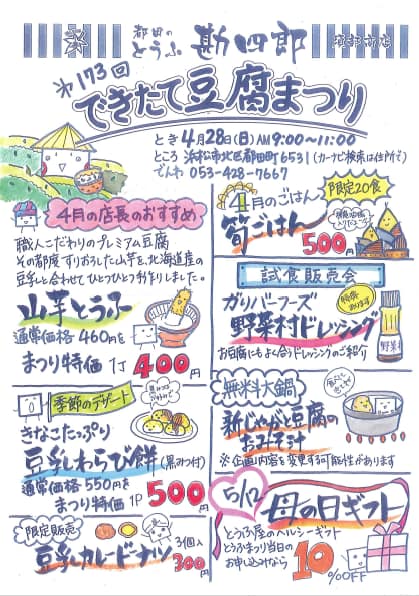 都田の
とうふ 勘四郎
才173回
できたて豆腐まつり
とき 4月28日(日)AM9:00〜11:00
ところ 浜松市北区都田町6531(カーナビ検索は住所で)
でんわ 053-428-7667
4月の店長のおすすめ
職人こだわりのプレミアム豆腐
その都度すりおろした山芋を、北海道産の
豆乳と合わせてひとつひとつ手作りしました。
山芋とうふ
通常価格 460円を
まつり特価 1丁 400円
季節のデザート
きなこたっぷり
豆乳わらび餅(黒みつ付)
通常価格 550円を
まつり特価 1P 500円
限定販売
豆乳カレードーナツ 3個入 300円
4月のごはん
限定20食
筍ごはん
500円
試食販売会
ガリバーフーズ
野菜村ドレッシング
お豆腐にもよく合うドレッシングのご紹介
無料大鍋
新じゃがと豆腐の
おみそ汁
※企画内容を変更する可能性があります
5/12
母の日ギフト
とうふ屋のヘルシーギフト
とうふまつり当日の
お申し込みなら 10%OFF